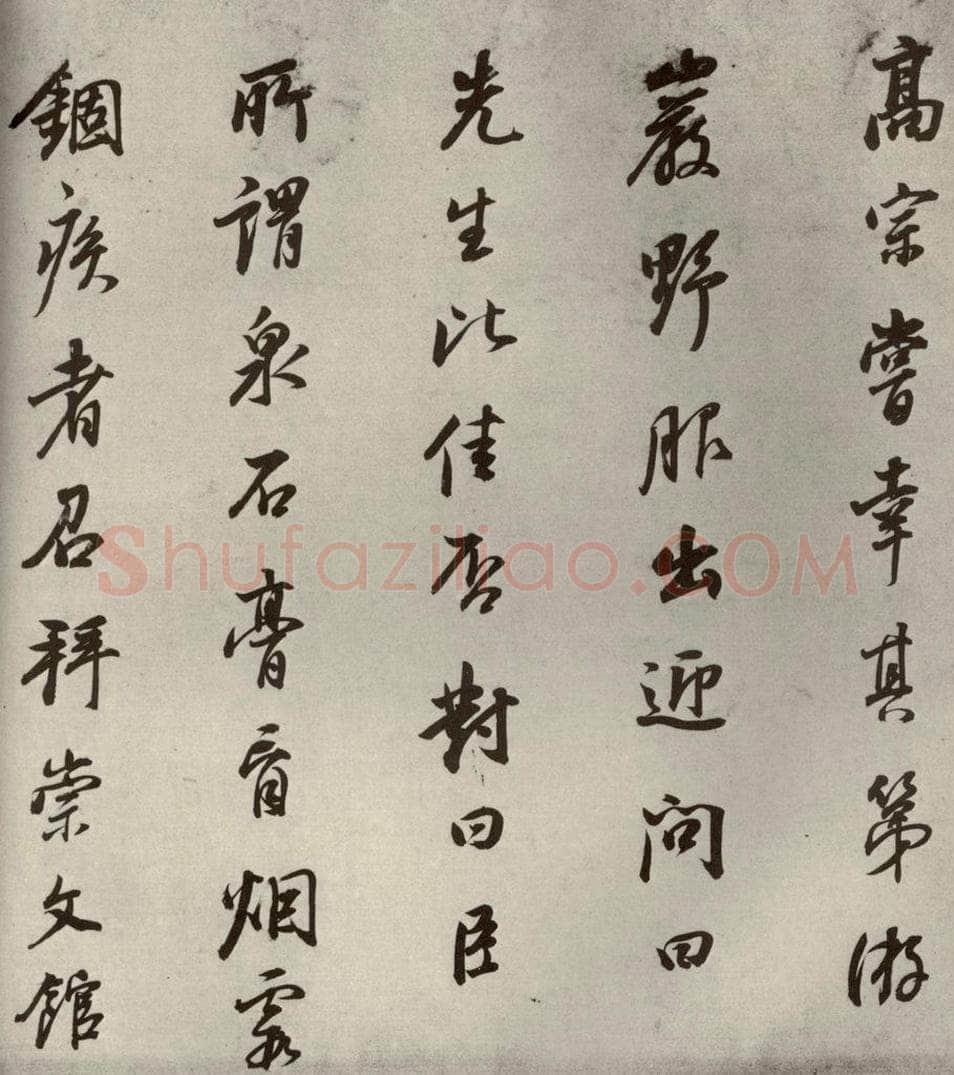 高宗嘗幸其第游
巖野服出迎問曰
先生比佳否對曰臣
所謂泉石膏肓烟霞
錮疾者召拜崇文館
Shufaziliao.COM